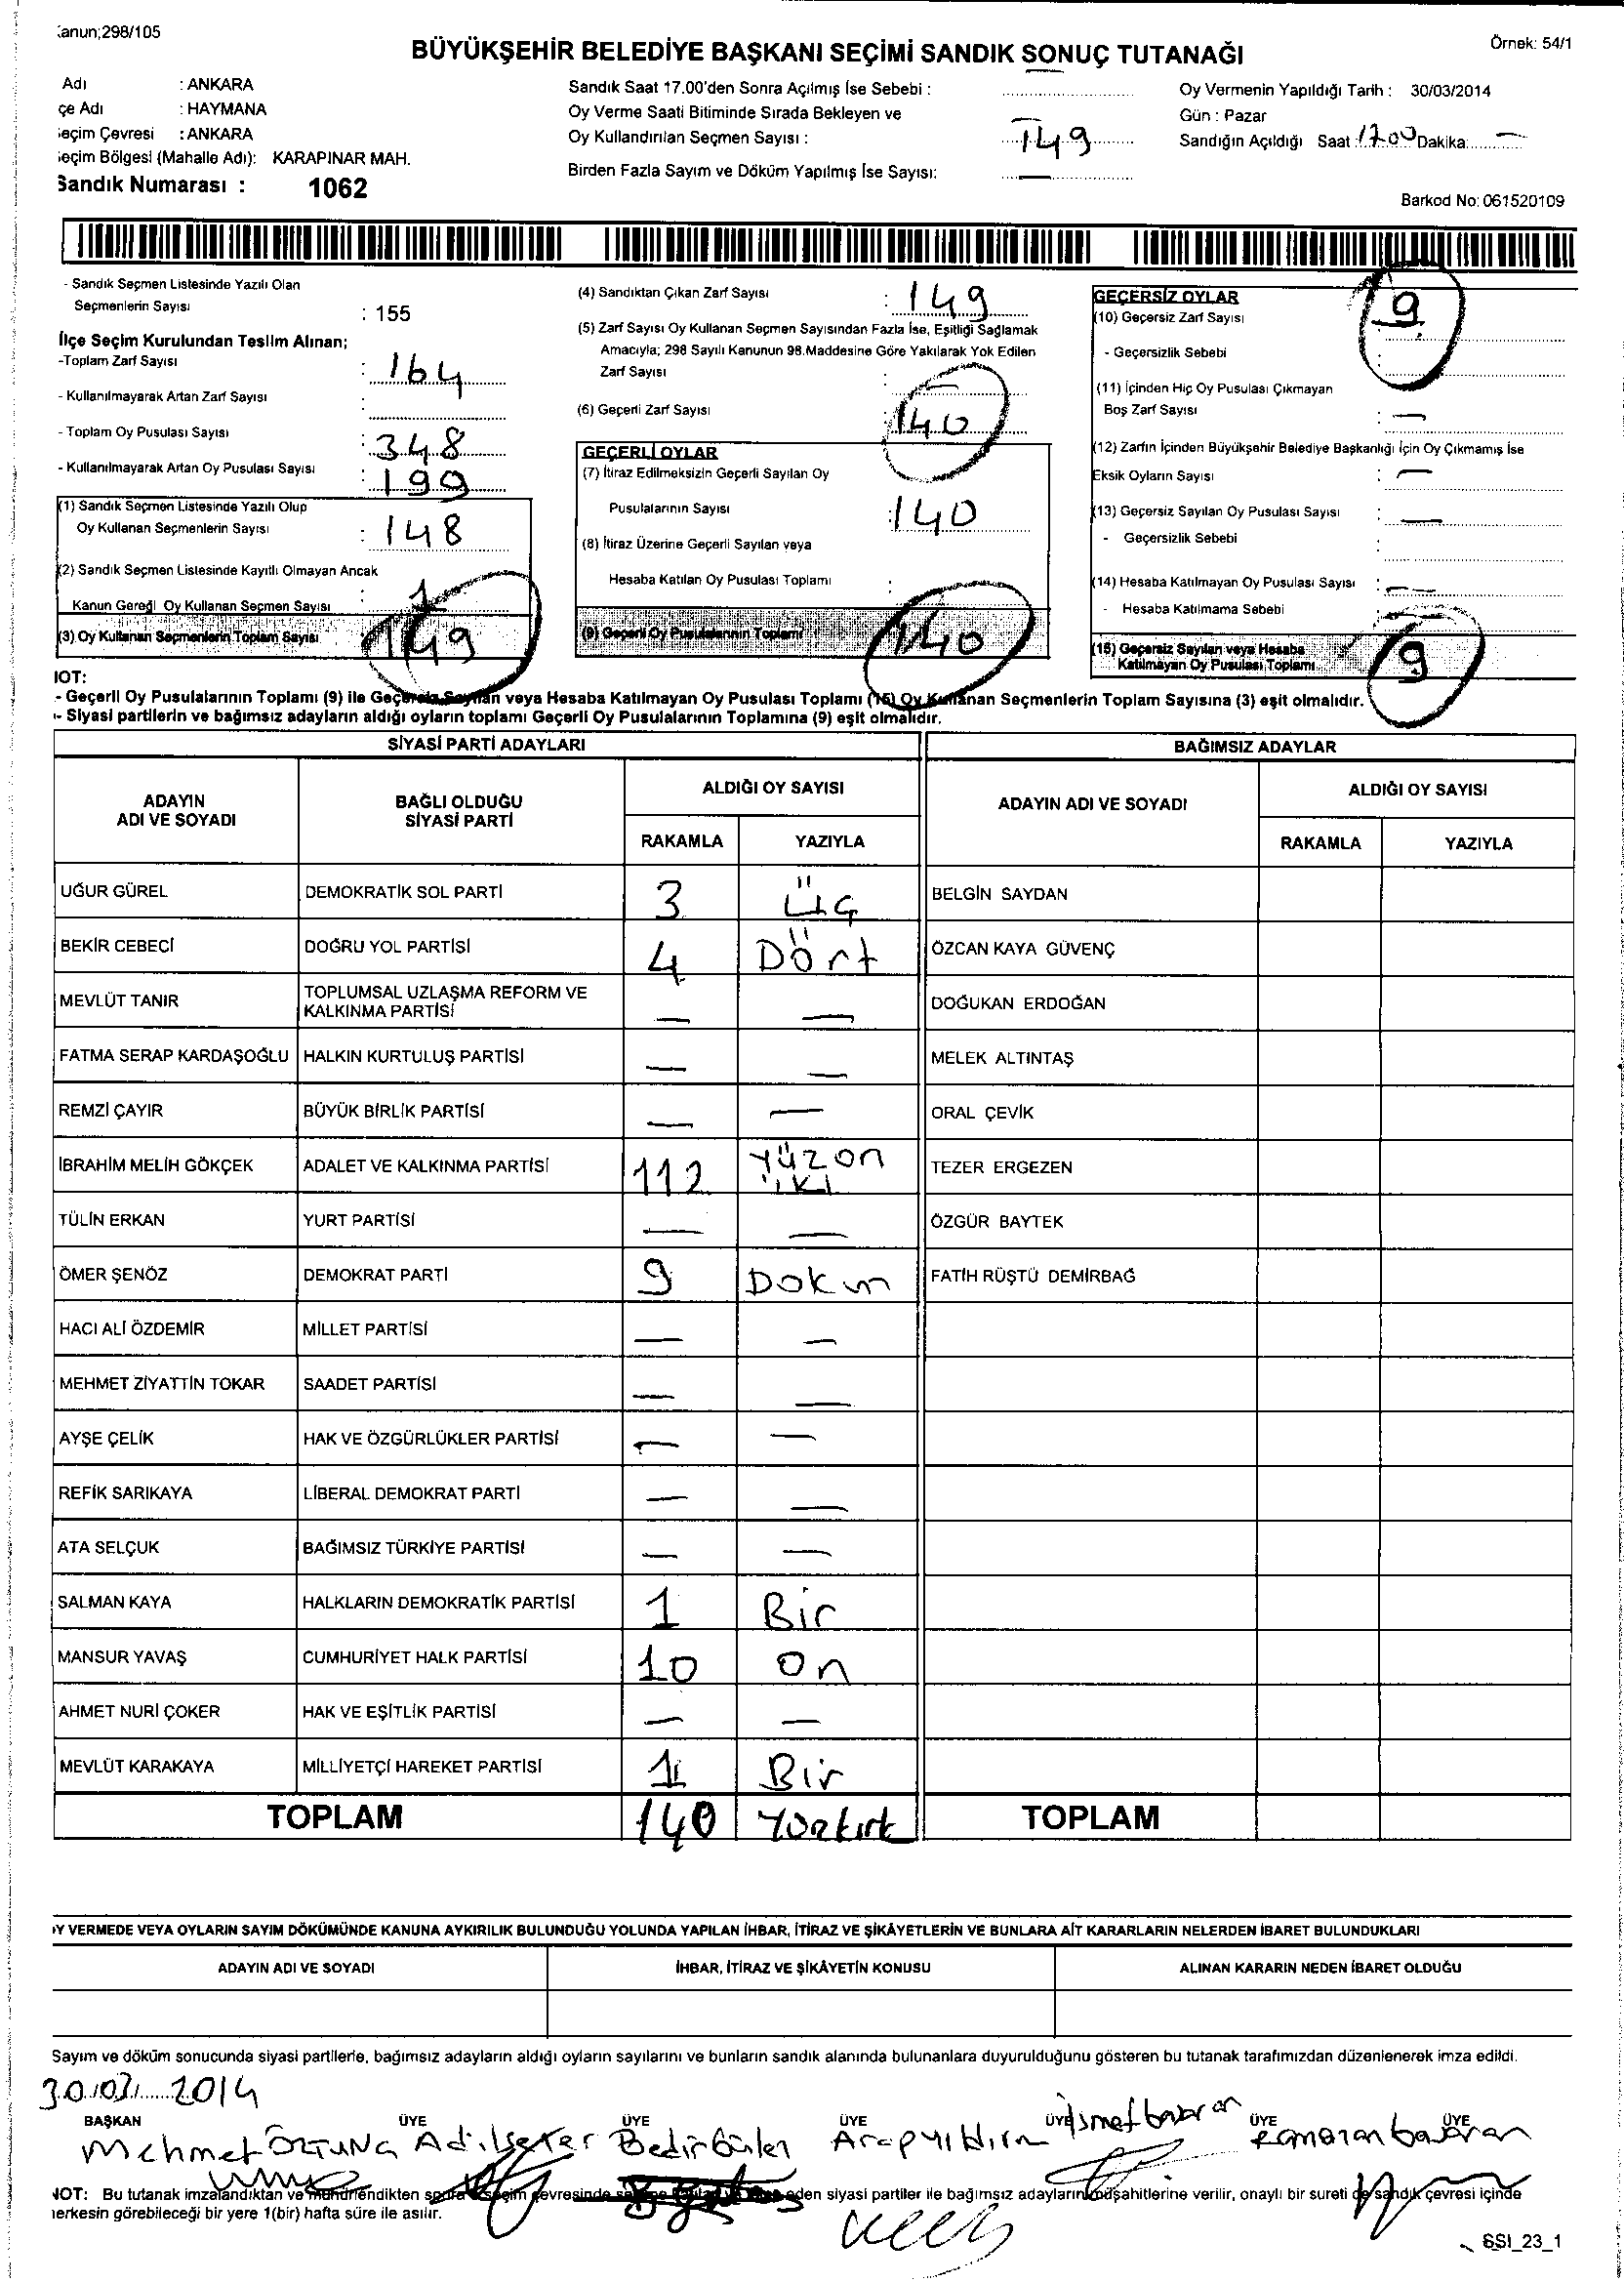 anun;298/105
Örnek: 54/1
BÜYÜKŞEHİR BELEDİYE BAŞKANI SEÇİMİ SANDIK SONUÇ TUTANAĞI
Adı : ANKARA
çe Adı : HAYMANA
eçim Çevresi : ANKARA
eçim Bölgesi (Mahalle Adı): KARAPINAR MAH.
Sandık Numarası : 1062
Sandık Saat 17.00'den Sonra Açılmış İse Sebebi : —
Oy Verme Saati Bitiminde Sırada Bekleyen ve
Oy Kullandırılan Seçmen Sayısı : 149
Birden Fazla Sayım ve Döküm Yapılmış İse Sayısı: —
Oy Vermenin Yapıldığı Tarih : 30/03/2014
Gün : Pazar
Sandığın Açıldığı Saat : 17.00 Dakika: —
Barkod No: 061520109
- Sandık Seçmen Listesinde Yazılı Olan
Seçmenlerin Sayısı : 155
İlçe Seçim Kurulundan Teslim Alınan;
-Toplam Zarf Sayısı : 164
- Kullanılmayarak Artan Zarf Sayısı :
- Toplam Oy Pusulası Sayısı : 348
- Kullanılmayarak Artan Oy Pusulası Sayısı : 199
(1) Sandık Seçmen Listesinde Yazılı Olup
Oy Kullanan Seçmenlerin Sayısı : 148
(2) Sandık Seçmen Listesinde Kayıtlı Olmayan Ancak
Kanun Gereği Oy Kullanan Seçmen Sayısı : 1
(3) Oy Kullanan Seçmenlerin Toplam Sayısı 149
(4) Sandıktan Çıkan Zarf Sayısı : 149
(5) Zarf Sayısı Oy Kullanan Seçmen Sayısından Fazla İse, Eşitliği Sağlamak
Amacıyla; 298 Sayılı Kanunun 98.Maddesine Göre Yakılarak Yok Edilen
Zarf Sayısı : —
(6) Geçerli Zarf Sayısı : 140
GEÇERLİ OYLAR
(7) İtiraz Edilmeksizin Geçerli Sayılan Oy
Pusulalarının Sayısı : 140
(8) İtiraz Üzerine Geçerli Sayılan veya
Hesaba Katılan Oy Pusulası Toplamı :
(9) Geçerli Oy Pusulalarının Toplamı 140
GEÇERSİZ OYLAR
(10) Geçersiz Zarf Sayısı 9
- Geçersizlik Sebebi :
(11) İçinden Hiç Oy Pusulası Çıkmayan
Boş Zarf Sayısı : —
(12) Zarfın İçinden Büyükşehir Belediye Başkanlığı İçin Oy Çıkmamış İse
Eksik Oyların Sayısı : —
(13) Geçersiz Sayılan Oy Pusulası Sayısı : —
- Geçersizlik Sebebi :
(14) Hesaba Katılmayan Oy Pusulası Sayısı : —
- Hesaba Katılmama Sebebi :
(15) Geçersiz Sayılan veya Hesaba
Katılmayan Oy Pusulası Toplamı 9
IOT:
- Geçerli Oy Pusulalarının Toplamı (9) ile Geçersiz Sayılan veya Hesaba Katılmayan Oy Pusulası Toplamı (15) Oy Kullanan Seçmenlerin Toplam Sayısına (3) eşit olmalıdır.
- Siyasi partilerin ve bağımsız adayların aldığı oyların toplamı Geçerli Oy Pusulalarının Toplamına (9) eşit olmalıdır.
SİYASİ PARTİ ADAYLARI BAĞIMSIZ ADAYLAR
ADAYIN ADI VE SOYADI BAĞLI OLDUĞU SİYASİ PARTİ ALDIĞI OY SAYISI ADAYIN ADI VE SOYADI ALDIĞI OY SAYISI
RAKAMLA YAZIYLA RAKAMLA YAZIYLA
UĞUR GÜREL DEMOKRATİK SOL PARTİ 3 Üç BELGİN SAYDAN
BEKİR CEBECİ DOĞRU YOL PARTİSİ 4 Dört ÖZCAN KAYA GÜVENÇ
MEVLÜT TANIR TOPLUMSAL UZLAŞMA REFORM VE KALKINMA PARTİSİ — — DOĞUKAN ERDOĞAN
FATMA SERAP KARDAŞOĞLU HALKIN KURTULUŞ PARTİSİ — — MELEK ALTINTAŞ
REMZİ ÇAYIR BÜYÜK BİRLİK PARTİSİ — — ORAL ÇEVİK
İBRAHİM MELİH GÖKÇEK ADALET VE KALKINMA PARTİSİ 112 Yüzon iki TEZER ERGEZEN
TÜLİN ERKAN YURT PARTİSİ — — ÖZGÜR BAYTEK
ÖMER ŞENÖZ DEMOKRAT PARTİ 9 Dokuz FATİH RÜŞTÜ DEMİRBAĞ
HACI ALİ ÖZDEMİR MİLLET PARTİSİ — —
MEHMET ZİYATTİN TOKAR SAADET PARTİSİ — —
AYŞE ÇELİK HAK VE ÖZGÜRLÜKLER PARTİSİ — —
REFİK SARIKAYA LİBERAL DEMOKRAT PARTİ — —
ATA SELÇUK BAĞIMSIZ TÜRKİYE PARTİSİ — —
SALMAN KAYA HALKLARIN DEMOKRATİK PARTİSİ 1 Bir
MANSUR YAVAŞ CUMHURİYET HALK PARTİSİ 10 On
AHMET NURİ ÇOKER HAK VE EŞİTLİK PARTİSİ — —
MEVLÜT KARAKAYA MİLLİYETÇİ HAREKET PARTİSİ 1 Bir
TOPLAM 140 Yüzkırk TOPLAM
Y VERMEDE VEYA OYLARIN SAYIM DÖKÜMÜNDE KANUNA AYKIRILIK BULUNDUĞU YOLUNDA YAPILAN İHBAR, İTİRAZ VE ŞİKÂYETLERİN VE BUNLARA AİT KARARLARIN NELERDEN İBARET BULUNDUKLARI
ADAYIN ADI VE SOYADI İHBAR, İTİRAZ VE ŞİKÂYETİN KONUSU ALINAN KARARIN NEDEN İBARET OLDUĞU
Sayım ve döküm sonucunda siyasi partilerle, bağımsız adayların aldığı oyların sayılarını ve bunların sandık alanında bulunanlara duyurulduğunu gösteren bu tutanak tarafımızdan düzenlenerek imza edildi.
30/03/2014
BAŞKAN ÜYE ÜYE ÜYE ÜYE ÜYE ÜYE
Mehmet ÖZTUNA Adil Şeker Bedir Arap yıldırım İsmet başaran Ramazan başaran
NOT: Bu tutanak imzalandıktan ve mühürlendikten sonra seçim çevresinde eden siyasi partiler ile bağımsız adayların müşahitlerine verilir, onaylı bir sureti de sandık çevresi içinde
erkesin görebileceği bir yere 1(bir) hafta süre ile asılır.
SSI_23_1